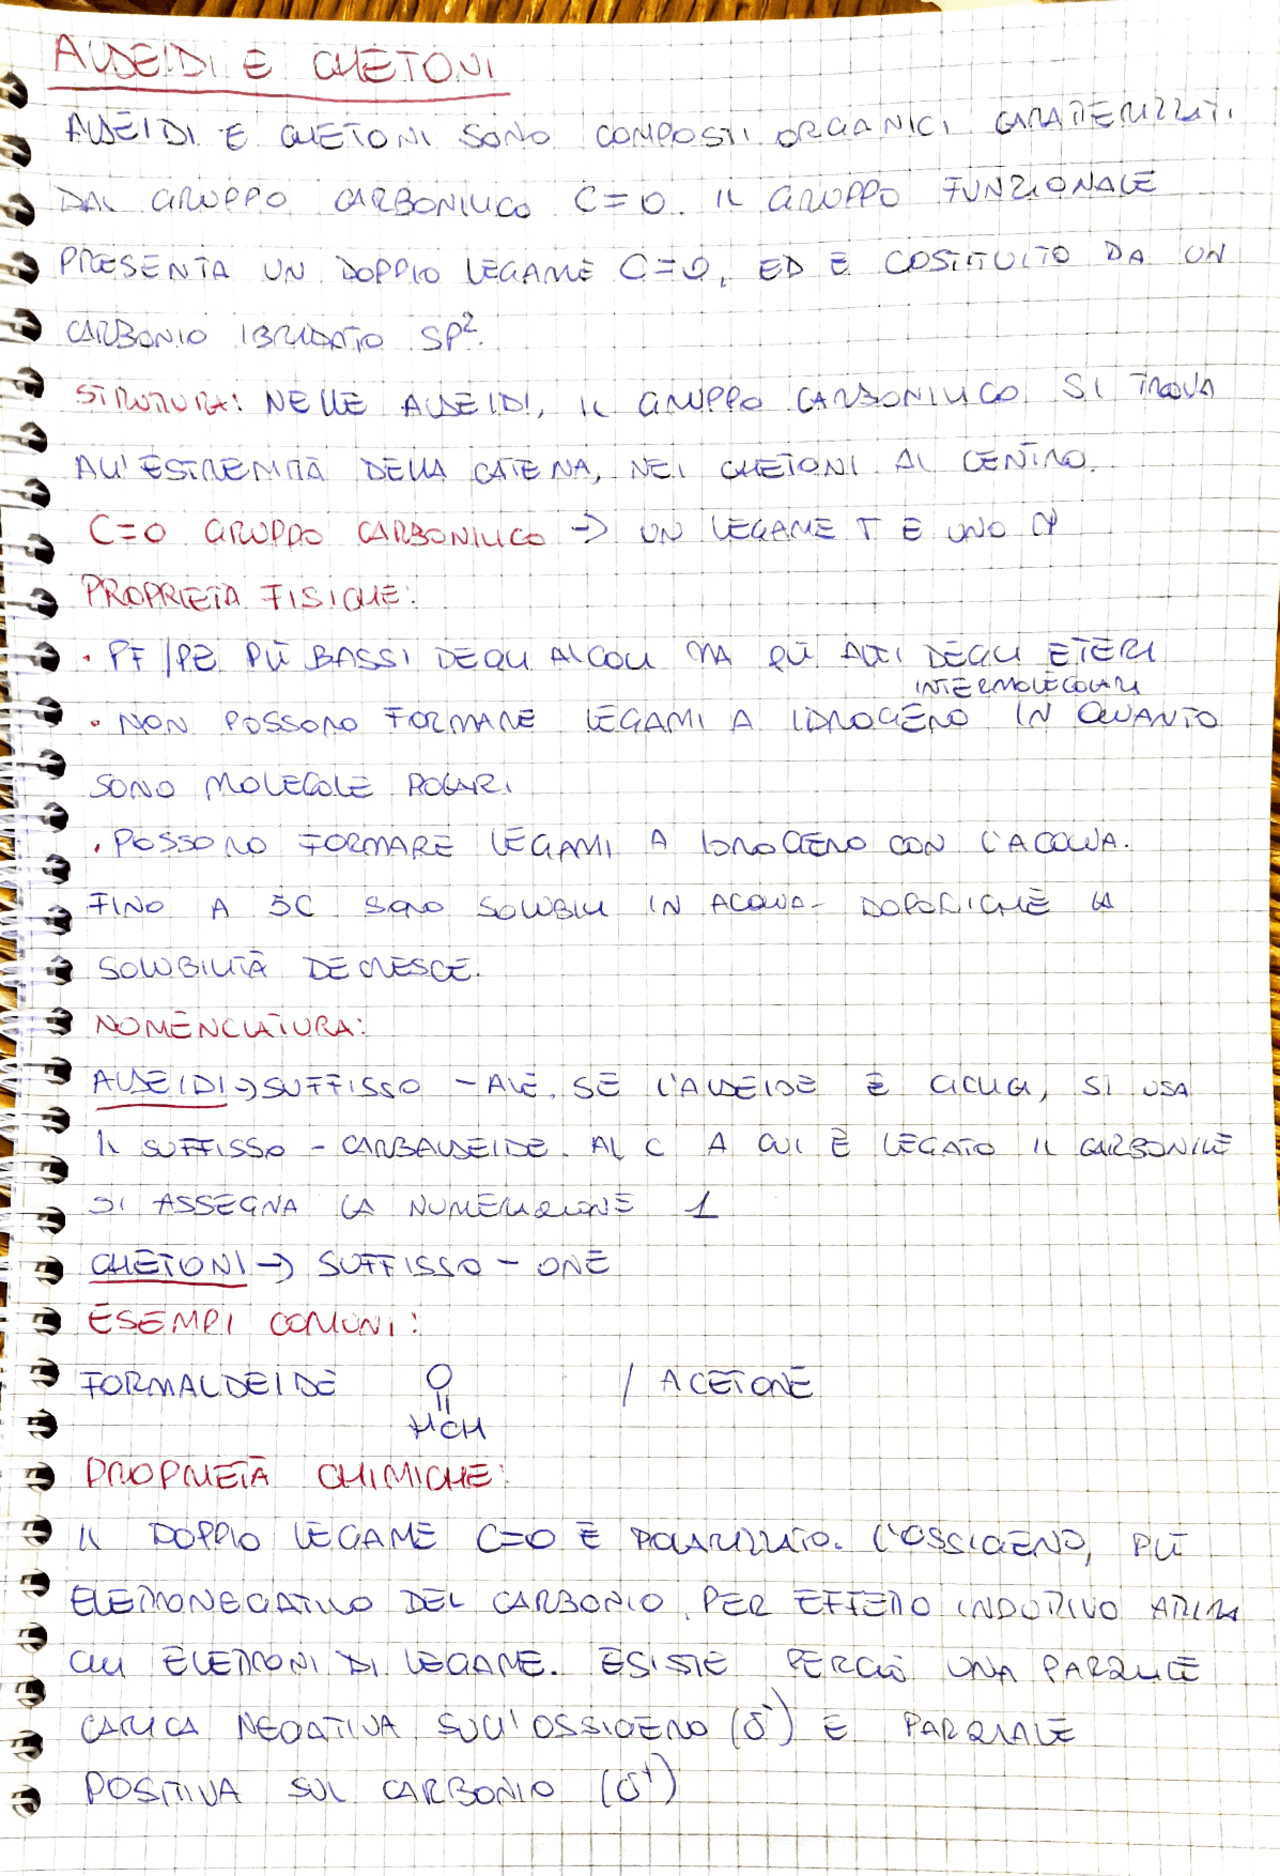 ALDEIDI E CHETONI
ALDEIDI E CHETONI SONO COMPOSTI ORGANICI CARATTERIZZATI
DAL GRUPPO CARBONILICO C=O. IL GRUPPO FUNZIONALE
PRESENTA UN DOPPIO LEGAME C=O, ED È COSTITUITO DA UN
CARBONIO IBRIDATO SP².
STRUTTURA: NELLE ALDEIDI, IL GRUPPO CARBONILICO SI TROVA
ALL'ESTREMITÀ DELLA CATENA, NEI CHETONI AL CENTRO.
C=O GRUPPO CARBONILICO → UN LEGAME π E UNO σ
PROPRIETÀ FISICHE:
• PF/PE PIÙ BASSI DEGLI ALCOLI MA PIÙ ALTI DEGLI ETERI
INTERMOLECOLARI
• NON POSSONO FORMARE LEGAMI A IDROGENO IN QUANTO
SONO MOLECOLE POLARI
• POSSONO FORMARE LEGAMI A IDROGENO CON L'ACQUA.
FINO A 5C SONO SOLUBILI IN ACQUA - DOPODICHÈ LA
SOLUBILITÀ DECRESCE.
NOMENCLATURA:
ALDEIDI → SUFFISSO -ALE. SE L'ALDEIDE È CICLICA, SI USA
IL SUFFISSO - CARBALDEIDE. AL C A CUI È LEGATO IL CARBONILE
SI ASSEGNA LA NUMERAZIONE 1
CHETONI → SUFFISSO - ONE
ESEMPI COMUNI:
FORMALDEIDE O / ACETONE
||
HCH
PROPRIETÀ CHIMICHE:
IL DOPPIO LEGAME C=O È POLARIZZATO. L'OSSIGENO, PIÙ
ELETTRONEGATIVO DEL CARBONIO, PER EFFETTO INDUTTIVO ATTIRA
GLI ELETTRONI DI LEGAME. ESISTE PERCIÒ UNA PARZIALE
CARICA NEGATIVA SULL'OSSIGENO (δ⁻) E PARZIALE
POSITIVA SUL CARBONIO (δ⁺)